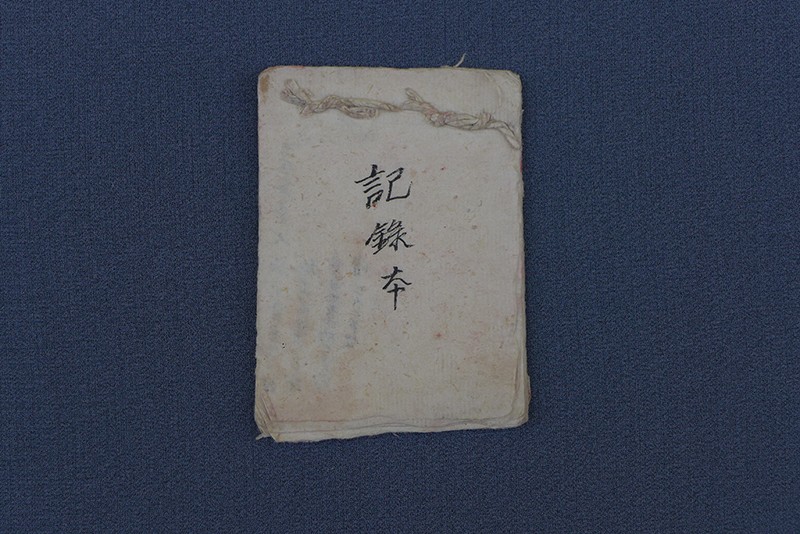 記錄本